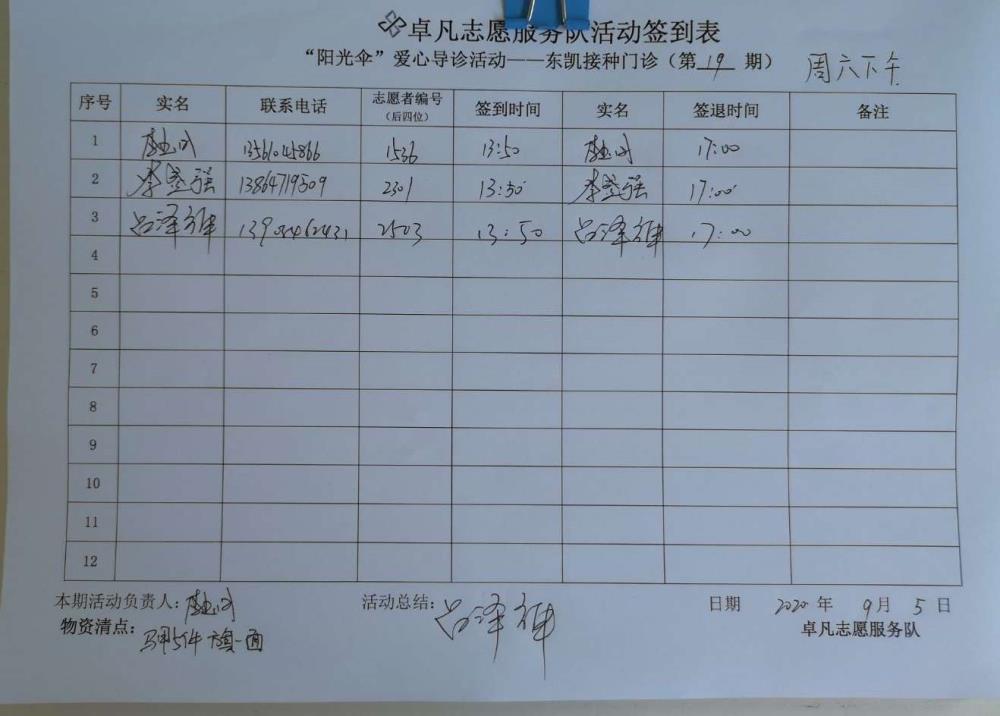 卓凡志愿服务队活动签到表
“阳光伞”爱心导诊活动——东凯接种门诊（第19期） 周六下午
序号 实名 联系电话 志愿者编号（后四位） 签到时间 实名 签退时间 备注
1 1536 13:50 17:00
2 李登强 13864719509 2301 13:50 李登强 17:00
3 吕泽雄 2503 13:50 吕泽雄 17:00
4
5
6
7
8
9
10
11
12
本期活动负责人： 活动总结：吕泽雄 日期 2020年9月5日
物资清点：马甲5件 旗一面 卓凡志愿服务队